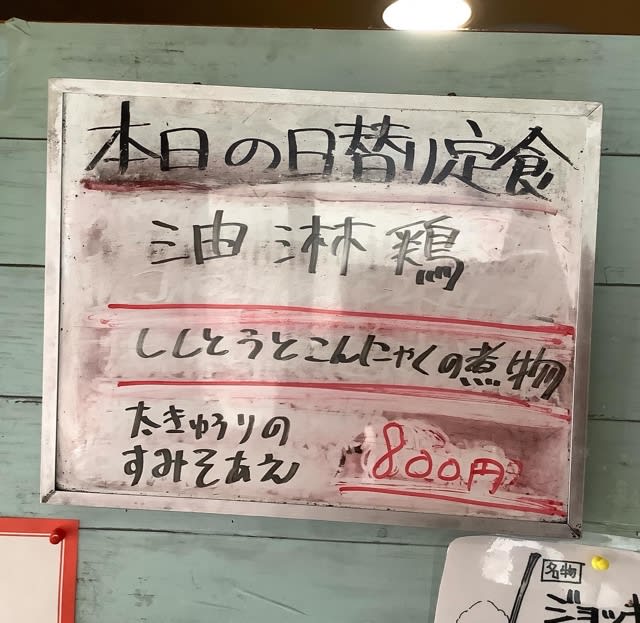 本日の日替り定食
油淋鶏
ししとうとこんにゃくの煮物
たきゅうりの
すみそあえ
800円
名物
ジョッキ